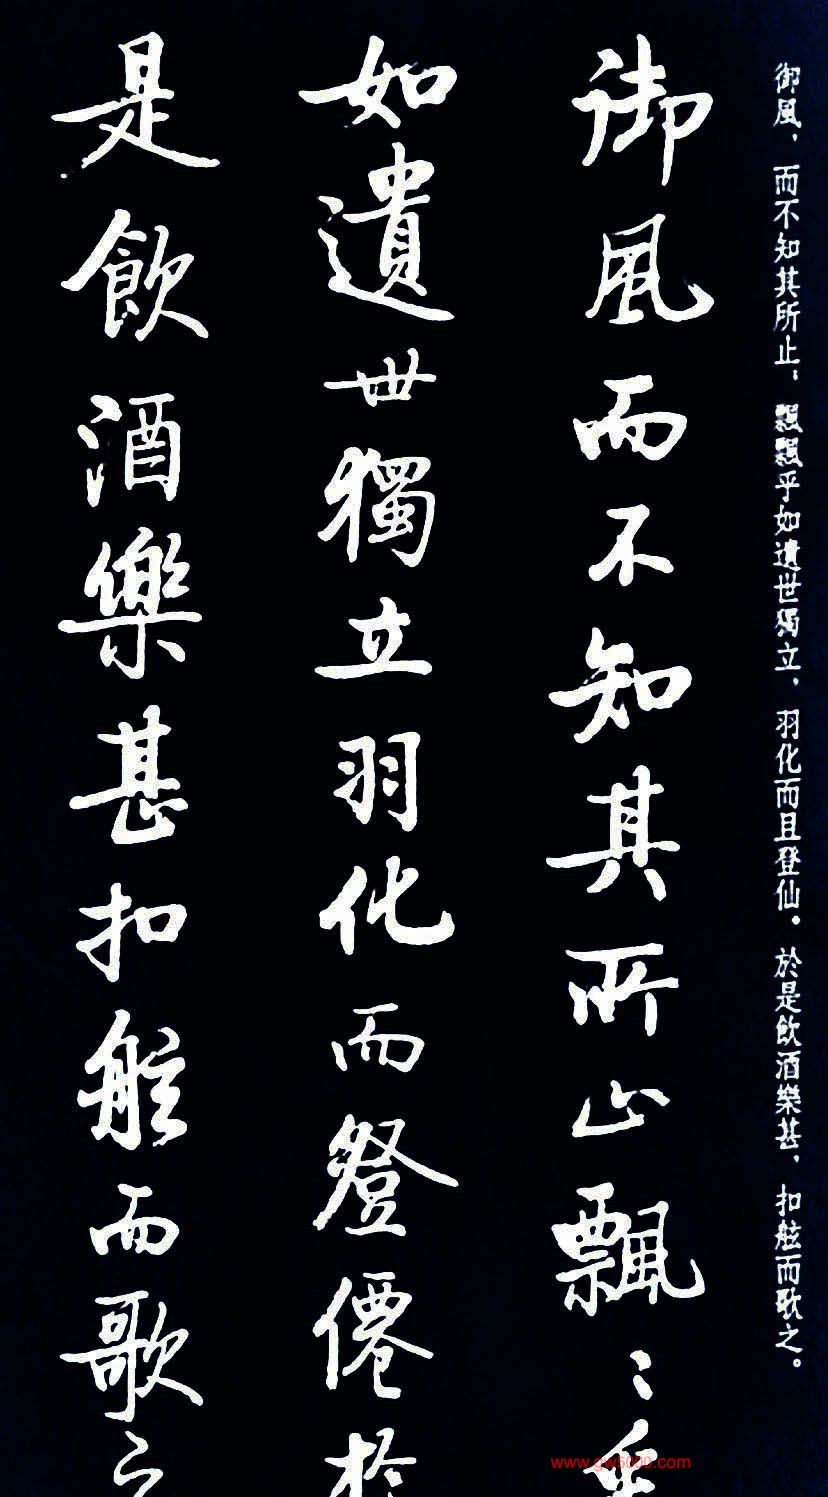 御風，而不知其所止；飄飄乎如遺世獨立，羽化而且登仙。於是飲酒樂甚，扣舷而歌之。
御風而不知其所止飄〻乎
如遺世獨立羽化而登僊於
是飲酒樂甚扣舷而歌之
www.gw6000.com